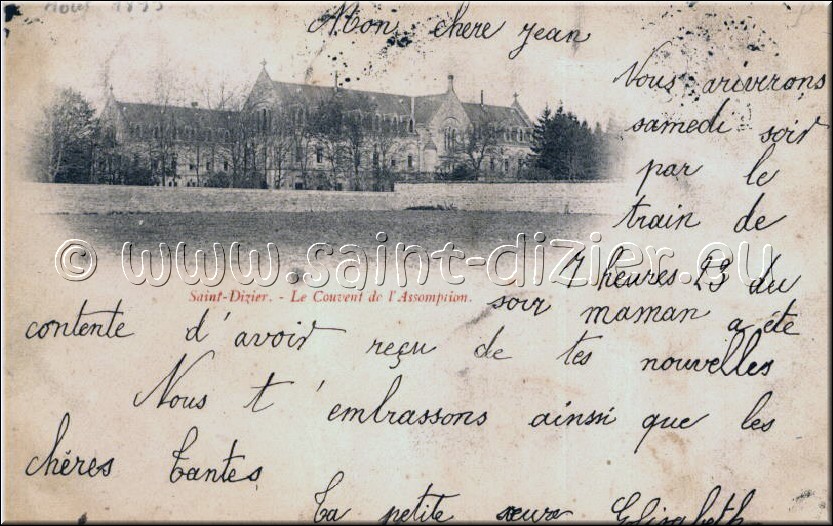 Mon chere jean
Nous ariverons
samedi soir
par le
train de
7 heures 23 du
soir maman a été
contente d'avoir reçu de tes nouvelles
Nous t'embrassons ainsi que les
chères tantes
Ta petite sœur Elisabeth
© www.saint-dizier.eu
Saint-Dizier. - Le Couvent de l'Assomption.